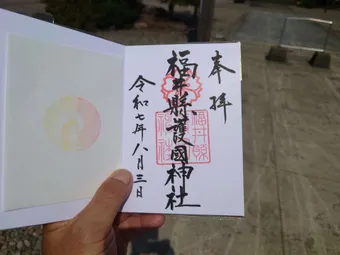 奉拝
福井縣護國神社
令和七年八月三日
福井縣護國神社